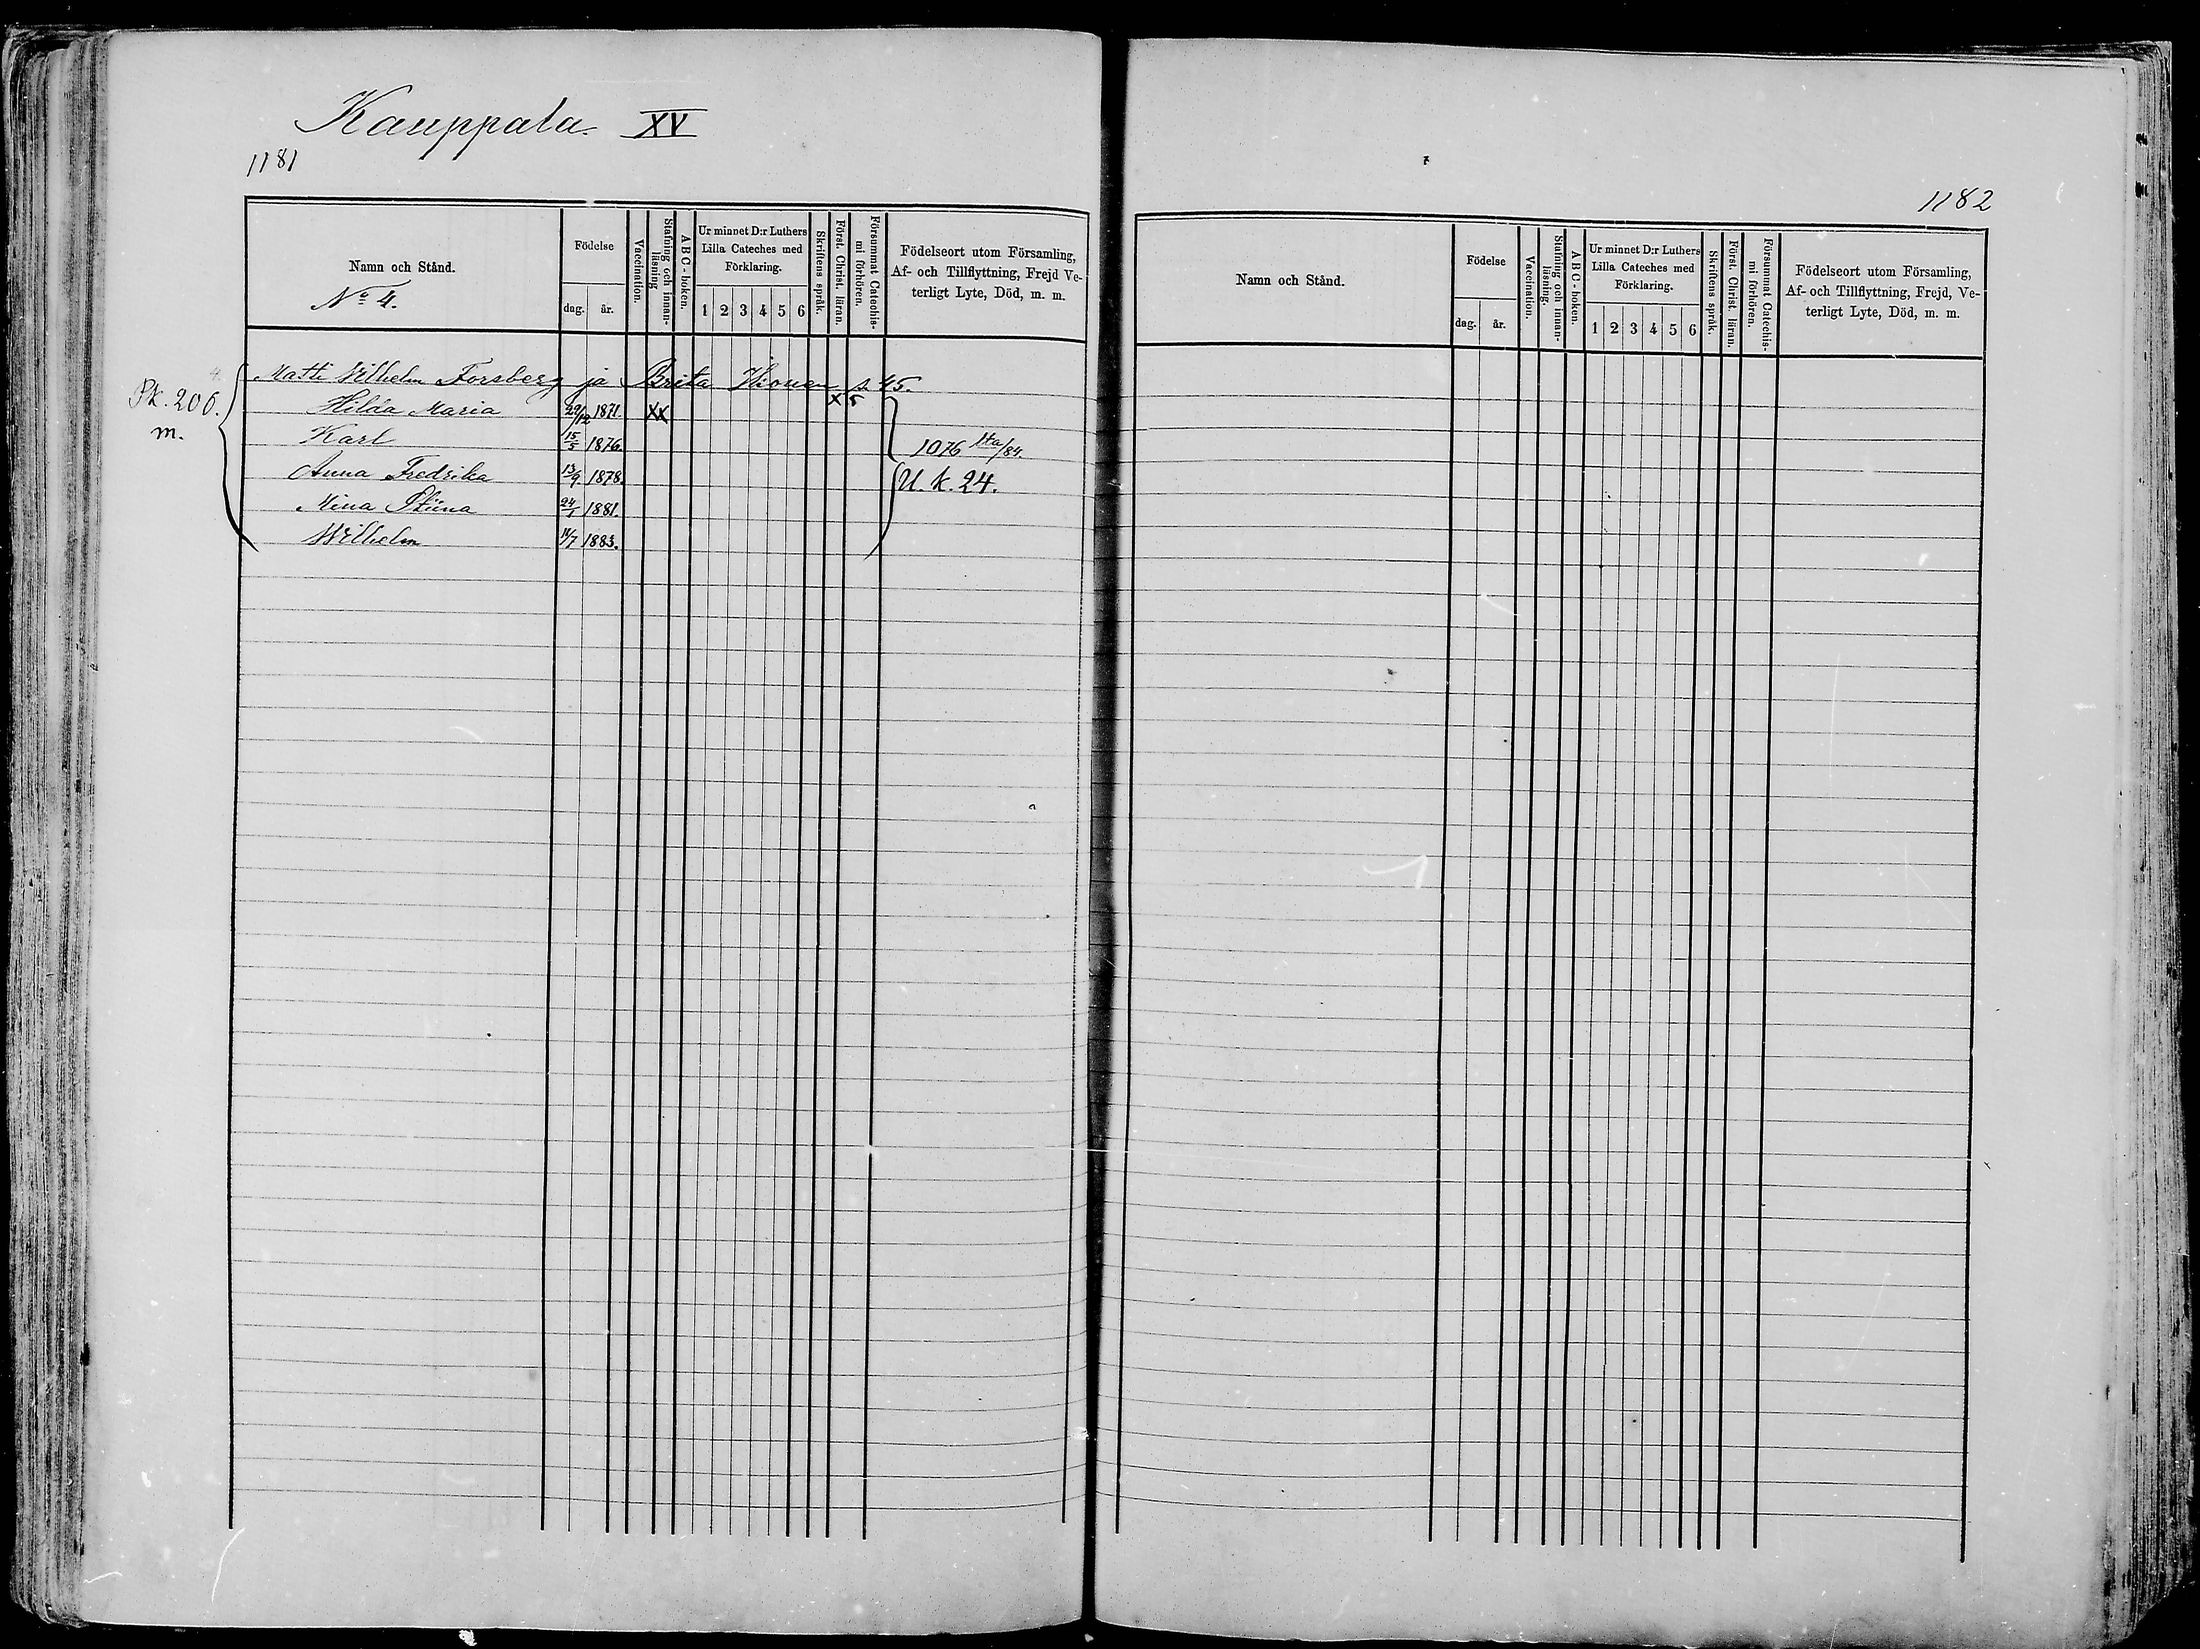 Kauppala XV
1181
Namn och Stånd.
No 4.
Födelse
dag. år.
Vaccination.
Stafning och innan-
läsning
A B C - boken.
Ur minnet D:r Luthers
Lilla Cateches med
Förklaring.
1 2 3 4 5 6
Skriftens språk.
Först. Christ. läran.
Försummat Catechis-
mi förhören.
Födelseort utom Församling,
Af- och Tillflyttning, Frejd Ve-
terligt Lyte, Död, m. m.
Matti Wilhelm Forsberg ja Brita s. 45.
Pk. 206.
m.
Hilda Maria 29/12 1871. XX X 5
Karl 15/5 1876. 1076 /84.
Anna Fredrika 13/9 1878. U. k. 24.
Mina Stiina 24/1 1881.
Wilhelm 11/7 1883.
1182
Namn och Stånd.
Födelse
dag. år.
Vaccination.
Stafning och innan-
läsning.
A B C - boken.
Ur minnet D:r Luthers
Lilla Cateches med
Förklaring.
1 2 3 4 5 6
Skriftens språk.
Först. Christ. läran.
Försummat Catechis-
mi förhören.
Födelseort utom Församling,
Af- och Tillflyttning, Frejd, Ve-
terligt Lyte, Död, m. m.